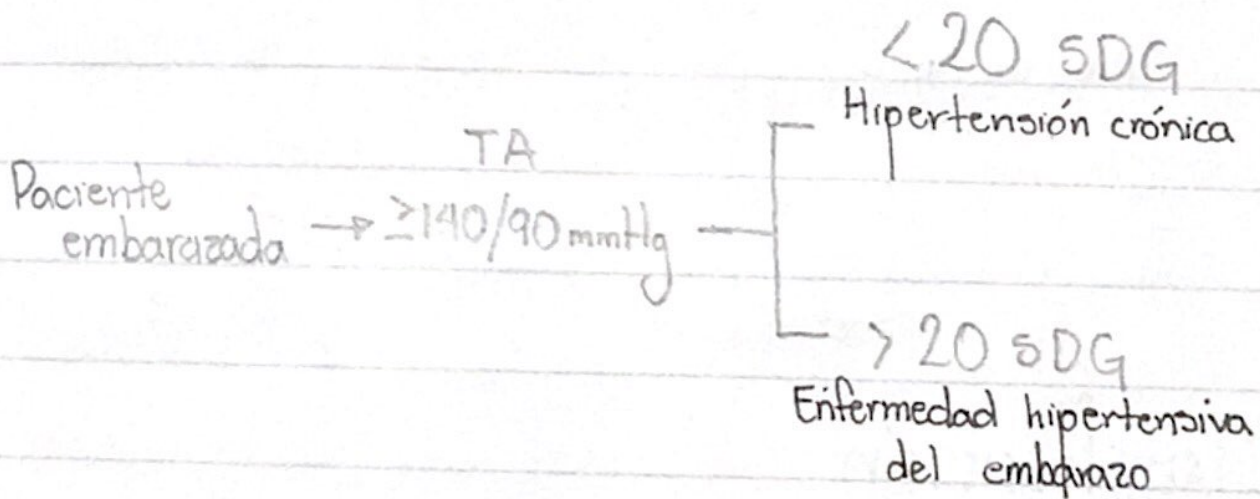 Paciente
embarazada → TA
≥140/90 mmHg
< 20 SDG
Hipertensión crónica
> 20 SDG
Enfermedad hipertensiva
del embarazo